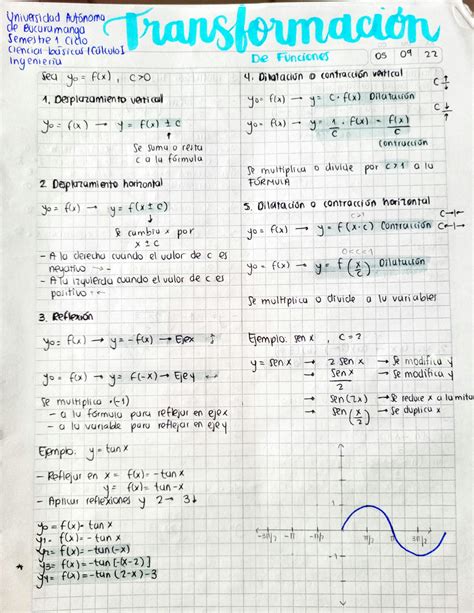 Universidad Autónoma
de Bucaramanga
Semestre 1 Ciclo
Ciencias básicas (Cálculo)
Ingeniería
Transformación
De Funciones
05 09 22
Sea y₀ = f(x), c>0
1. Desplazamiento vertical
y₀ = f(x) → y = f(x) ± c
↑
Se suma o resta
c a la fórmula
2. Desplazamiento horizontal
y₀ = f(x) → y = f(x ± c)
↓
Se cambia x por
x ± c
- A la derecha cuando el valor de c es
negativo →
- A la izquierda cuando el valor de c es
positivo ←
3. Reflexión
y₀ = f(x) → y = -f(x) → Eje x
y₀ = f(x) → y = f(-x) → Eje y
Se multiplica · (-1)
- a la fórmula para reflejar en eje x
- a la variable para reflejar en eje y
Ejemplo: y = tan x
- Reflejar en x = f(x) = -tan x
y = f(x) = tan -x
- Aplicar reflexiones y 2 → 3↓
y₀ = f(x) = tan x
y₁ = f(x) = -tan x
y₂ = f(x) = -tan(-x)
y₃ = f(x) = -tan[-(x-2)]
* y₄ = f(x) = -tan(2-x)-3
4. Dilatación o contracción vertical
C ↑
C ↓
y₀ = f(x) → y = c · f(x) Dilatación
y₀ = f(x) → y = 1/c · f(x) = f(x)/c
Contracción
Se multiplica o divide por c>1 a la
FÓRMULA
5. Dilatación o contracción horizontal
c>1
y₀ = f(x) → y = f(x·c) Contracción
0<c<1
y₀ = f(x) → y = f(x/c) Dilatación
Se multiplica o divide a la variables
Ejemplo: sen x, c = 2
y = sen x → 2 sen x → Se modifica y
→ sen x/2 → Se modifica y
→ sen(2x) → Se reduce x a la mitad
→ sen(x/2) → Se duplica x
1
-3π/2 -π -π/2 π/2 π 3π/2
-1